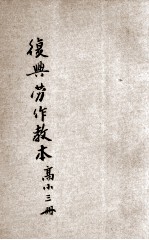 復興劳作教本高小三冊